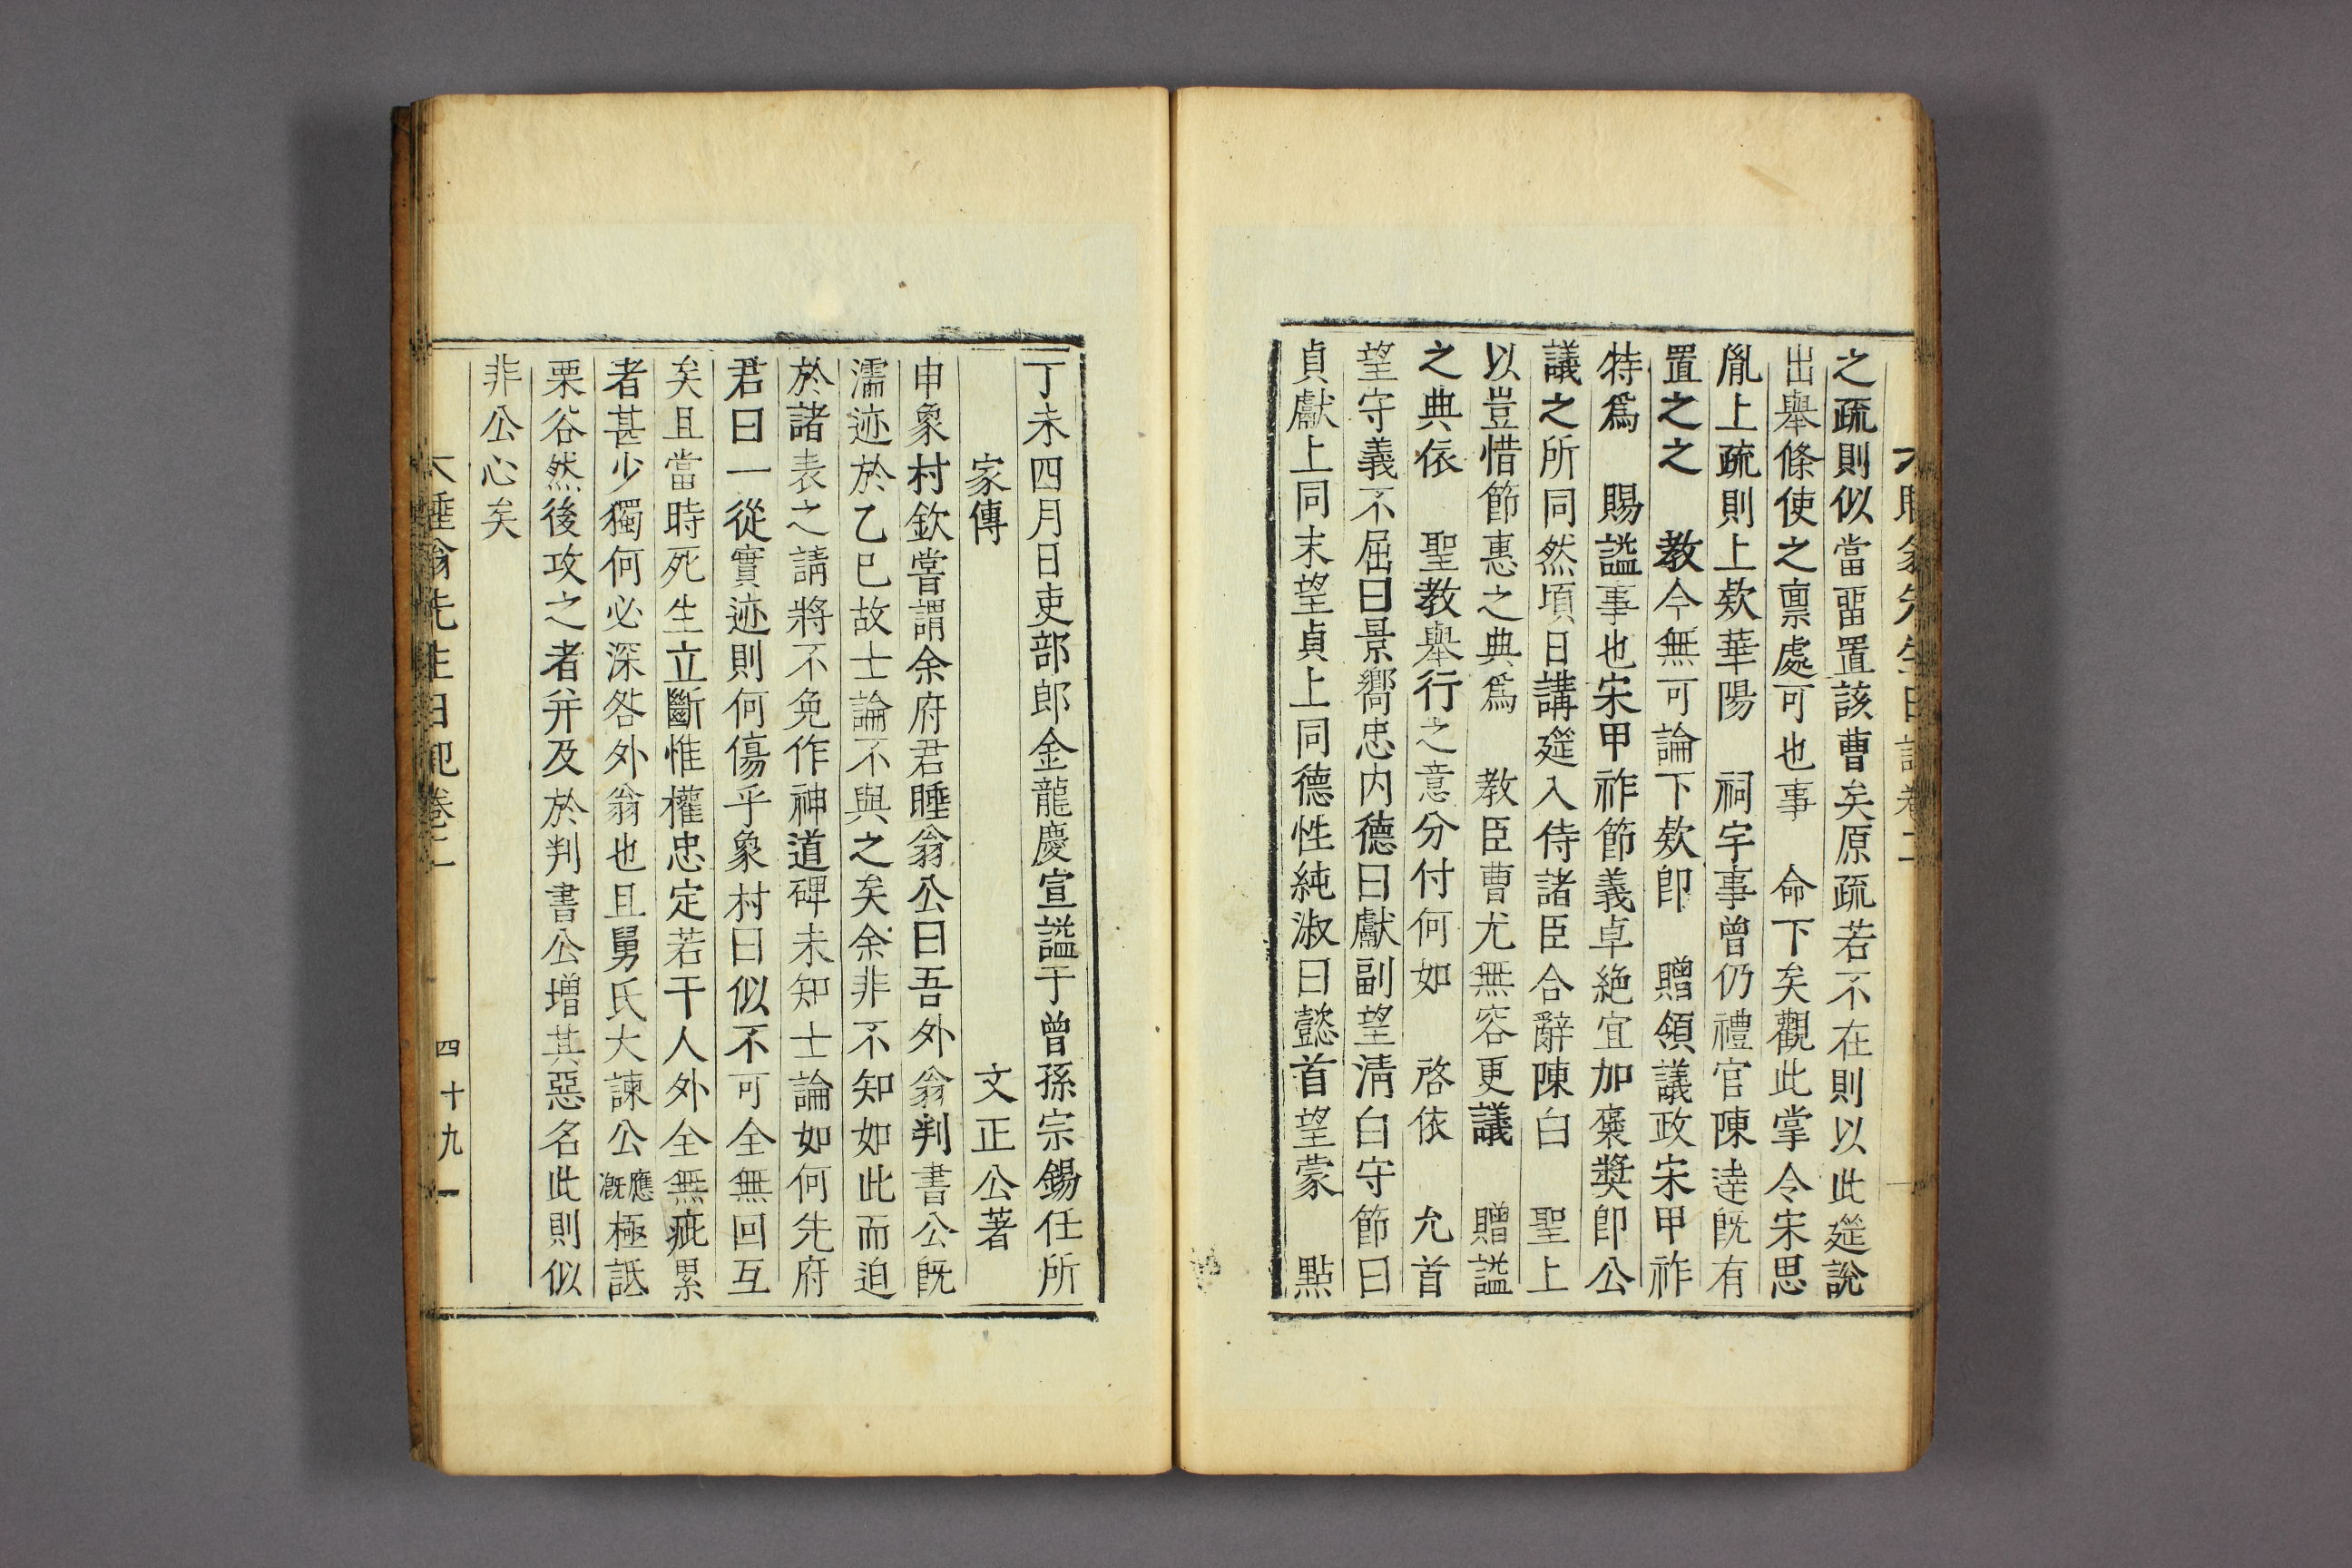 之疏則似當畱置該曹矣原疏若不在則以此筵說
出舉條使之禀處可也事 命下矣觀此掌令宋思
胤上疏則上欵華陽 祠宇事曾仍禮官陳達旣有
置之之 教今無可論下欵卽 贈領議政宋甲祚
特爲 賜謚事也宋甲祚節義卓絶宜加褒奬卽公
議之所同然頃日講筵入侍諸臣合辭陳白 聖上
以豈惜節惠之典爲 教臣曹尤無容更議 贈謚
之典依 聖教舉行之意分付何如 啓依 允首
望守義不屈曰景嚮忠內德曰獻副望淸白守節曰
貞獻上同末望貞上同德性純淑曰懿首望蒙 點
丁未四月日吏部郎金龍慶宣謚于曾孫宗錫任所
家傳 文正公著
申象村欽嘗謂余府君睡翁公曰吾外翁判書公旣
濡迹於乙巳故士論不與之矣余非不知如此而迫
於諸表之請將不免作神道碑未知士論如何先府
君曰一從實迹則何傷乎象村曰似不可全無回互
矣且當時死生立斷惟權忠定若干人外全無疵累
者甚少獨何必深咎外翁也且舅氏大諫公應漑極詆
栗谷然後攻之者并及於判書公增其惡名此則似
非公心矣
睡翁先生日記卷二 四十九